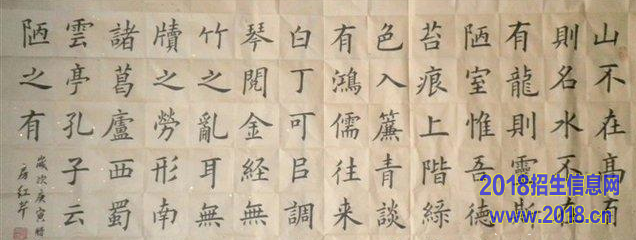 山不在高有
則名水不在
有龍則靈斯
陋室惟吾德
苔痕上階綠
色入簾青談
有鴻儒往来
白丁可㠯調
琴閱金經無
竹之亂耳無
牘之勞形南
諸葛廬西蜀
雲亭孔子云
陋之有
歲次庚寅
2018招生信息网
www.2018.cn